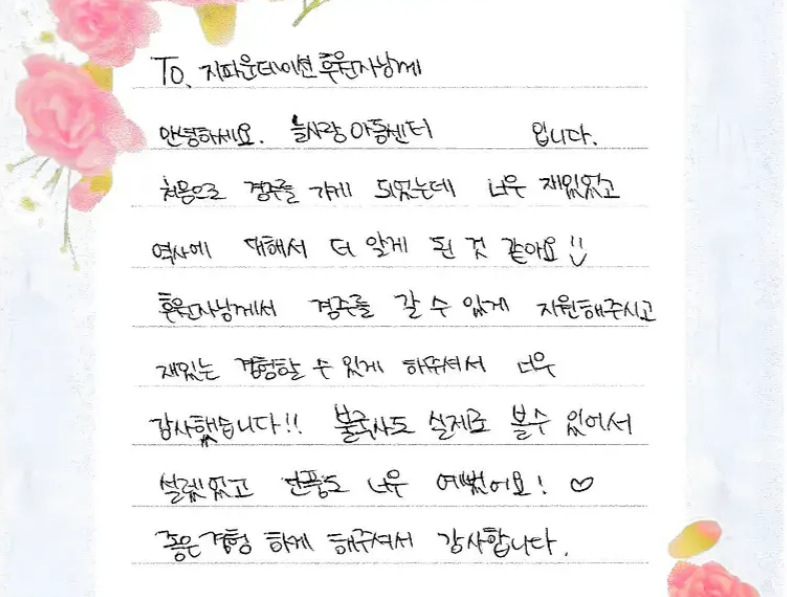 To. 지파운데이션 후원자님께
안녕하세요. 늘사랑아동센터 입니다.
처음으로 경주를 가게 되었는데 너무 재있었고
역사에 대해서 더 알게 된 것 같아요!!
후원자님께서 경주를 갈 수 있게 지원해주시고
재밌는 경험할 수 있게 해주셔서 너무
감사했습니다!! 불국사도 실제로 볼수 있어서
설렜었고 단풍도 너무 예뻤어요! ♡
좋은경험 하게 해주셔서 감사합니다.